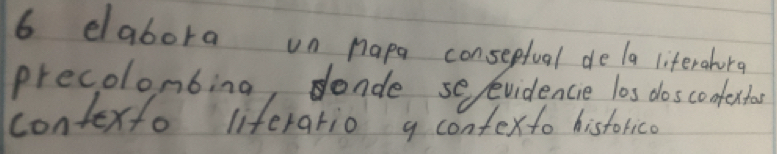 6 elabora un mapa conseptual de la literatura
precolombina, donde se evidencie los dos contextos
contexto literario y contexto historico